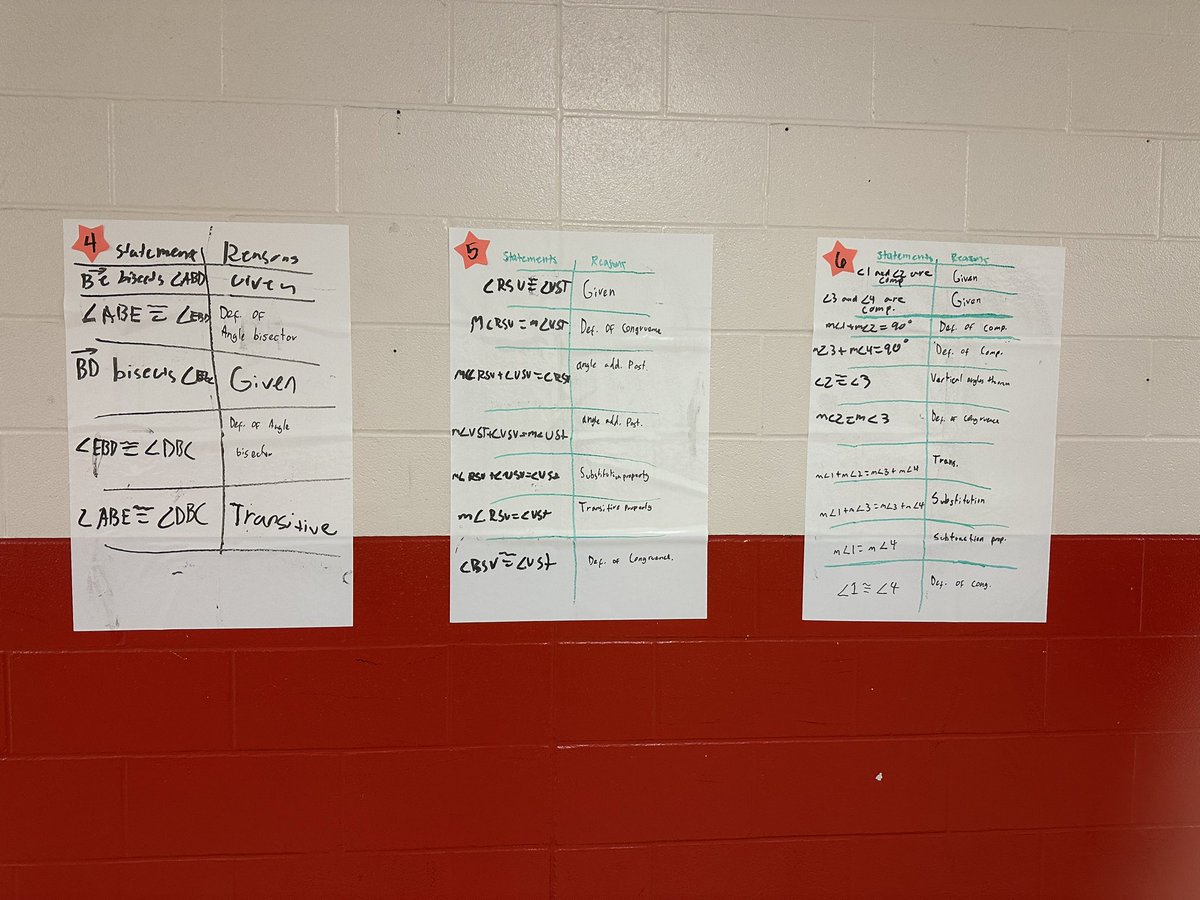 4
Statement Reasons
BE bisects ∠ABD Given
∠ABE ≅ ∠EBD Def. of
Angle bisector
BD bisects Given
∠EBD ≅ ∠DBC Def. of Angle
bisector
∠ABE ≅ ∠DBC Transitive
5
Statements Reasons
∠RSV ≅ ∠UST Given
M∠RSV = m∠UST Def. of Congruence
m∠RSV + ∠VSU = ∠RSU angle add. Post.
m∠UST + ∠USV = m∠VST angle add. Post.
Substitution property
Transitive Property
Def. of Congruence.
6
Statements Reasons
∠1 and ∠2 are
comp Given
∠3 and ∠4 are
comp. Given
m∠1 + m∠2 = 90° Def. of comp.
m∠3 + m∠4 = 90° Def. of Comp.
∠2 ≅ ∠3 Vertical angles theorem
m∠2 = m∠3 Def. of congruence
m∠1 + m∠2 = m∠3 + m∠4 Trans.
m∠1 + m∠3 = m∠3 + m∠4 Substitution
m∠1 = m∠4 Subtraction prop.
∠1 ≅ ∠4 Def. of Cong.